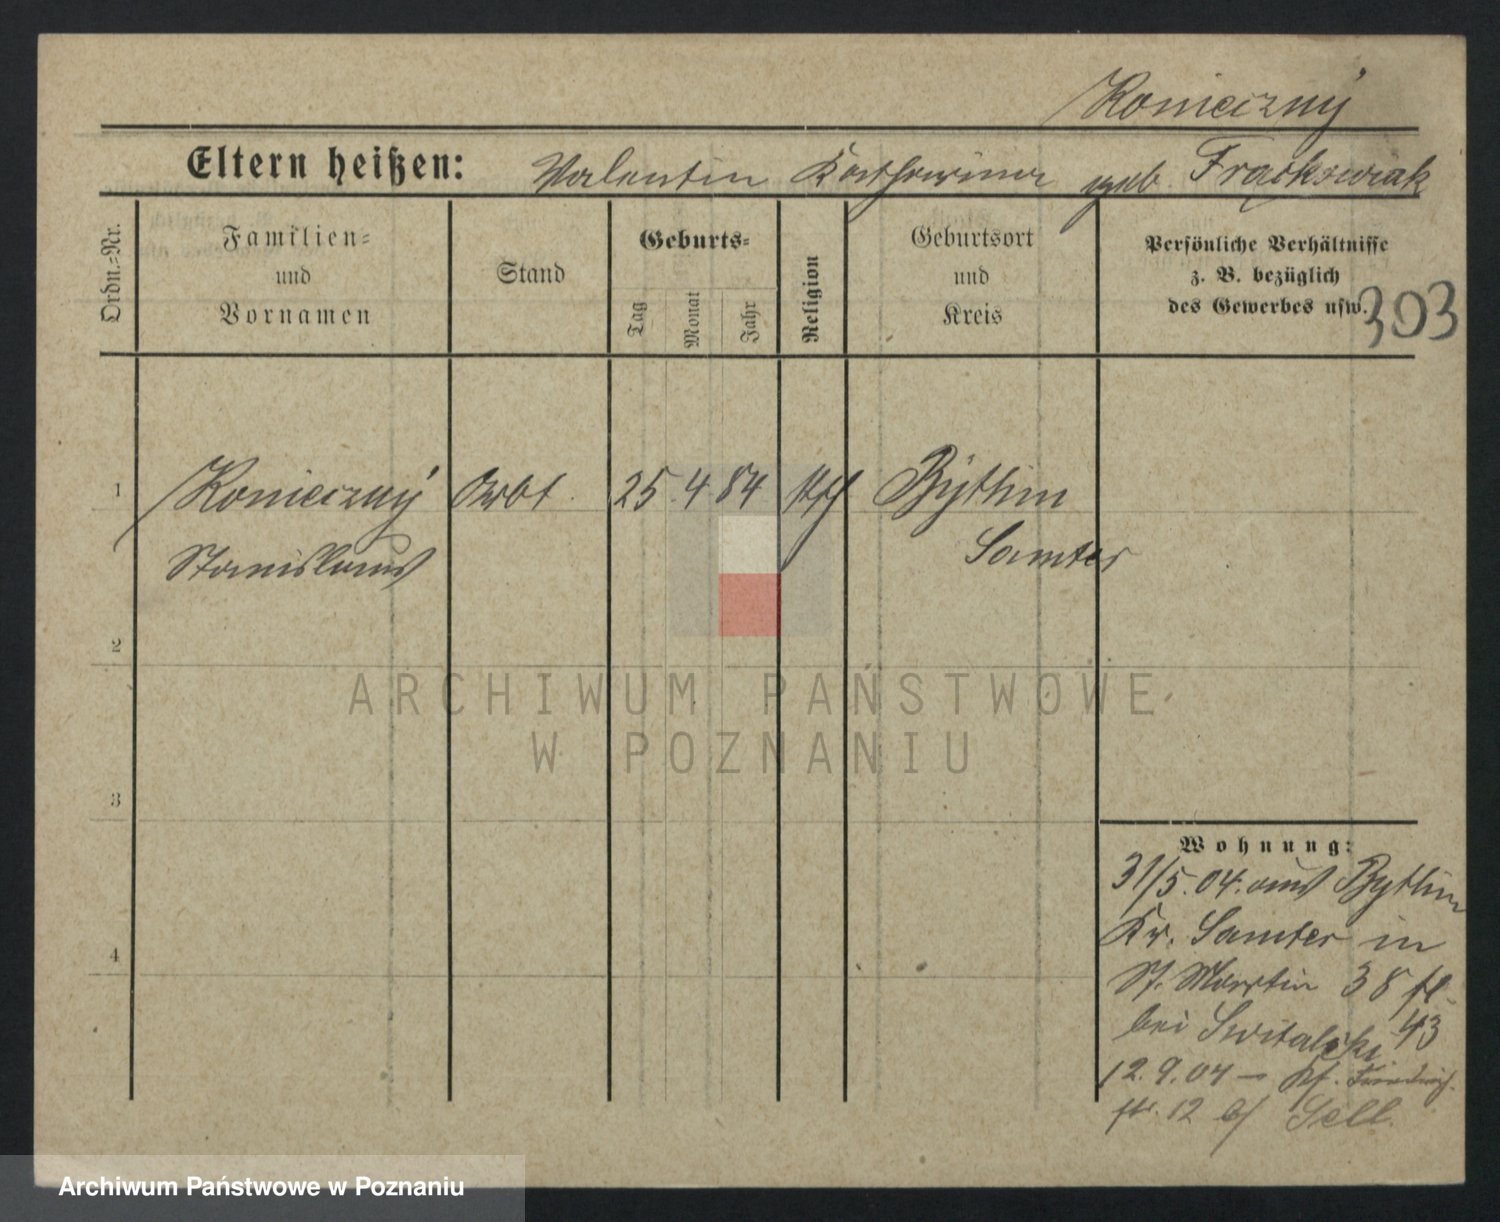 Konieczny
Eltern heißen: Valentin Katharina geb. Frąckowiak
Ordn.-Nr.
Familien-
und
Vornamen
Stand
Geburts-
Tag
Monat
Jahr
Religion
Geburtsort
und
Kreis
Persönliche Verhältnisse
z. B. bezüglich
des Gewerbes usw.
303
1 Konieczný Arbt. 25 4 84 kth Bythin
Stanislaus Samter
2
3
4
ARCHIWUM PAŃSTWOWE
W POZNANIU
Wohnung:
31/5.04. aus Bythin
Kr. Samter in
St. Martin 38
bei Switalski 43
12.9.04 –
str. 12 b/ Sell.
Archiwum Państwowe w Poznaniu